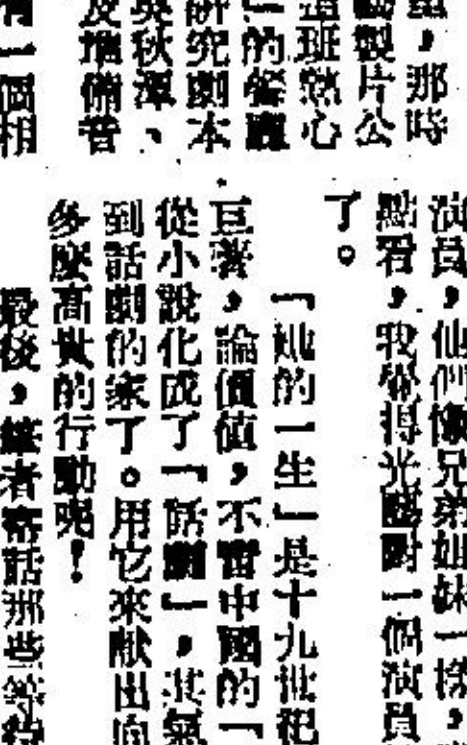 ，那時
製片公
這班熱心
」的
研究劇本
吳秋潭、
及推備普
有一個相
演員，他們像兄弟姐妹一樣，
點看，我覺得光 對一個演員
了。
「她的一生」是十九世紀
巨著，論價值，不啻中國的「
從小說化成了「話劇」，其氣
到話劇的家了。用它來献出向
多麼高貴的行動呢！
最後，筆者寄話那些等待